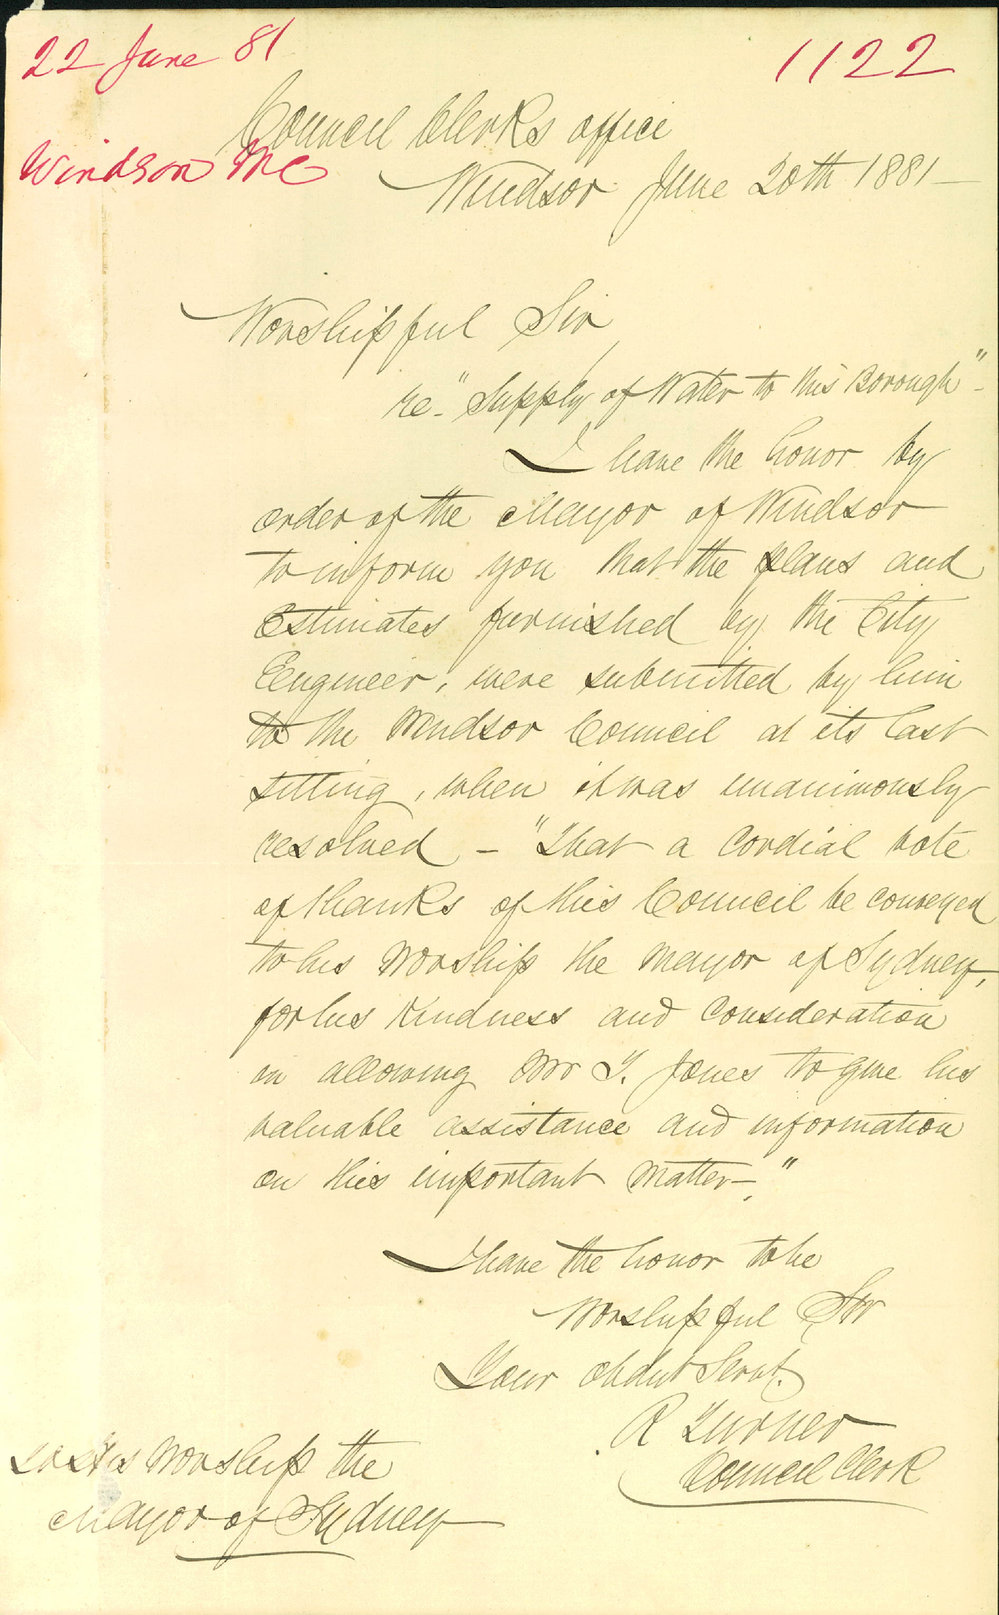 22 June 81
1122
Council Clerks office
Windsor Mc
Windsor June 20th 1881 –
Worshipful Sir
re – "Supply of Water to this Borough" –
I have the honor by
order of the Mayor of Windsor
to inform you that the plans and
Estimates furnished by the City
Engineer, were submitted by him
to the Windsor Council at its last
sitting, when it was unanimously
resolved – "That a cordial vote
of thanks of this Council be conveyed
to his Worship the Mayor of Sydney,
for his kindness and consideration
in allowing Mr T. Jones to give his
valuable assistance and information
on this important matter –."
I have the honor to be
Worshipful Sir
Your obdnt Servt.
R Turner
Council Clerk
To His Worship the
Mayor of Sydney